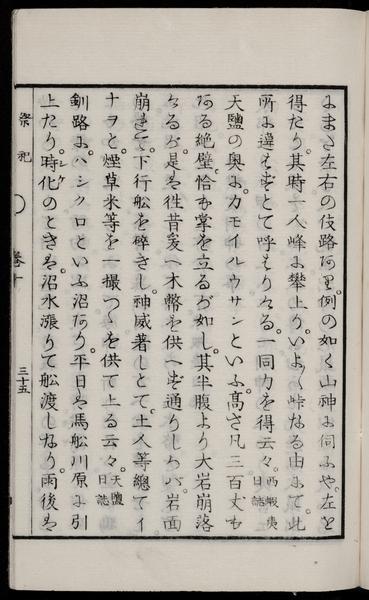 にまた左右の伎路阿里例の如く山神に伺ふや左と
得たり其時一人峰に攀上りいよく峠なる由にて此
所に違もなとて呼もりける一同力を得云々西蝦夷日誌
天鹽の奥にカモイルウサンといふ高さ凡三百丈も
ある絶壁恰も掌を立るが如し其半腹より大岩崩落
けるが是は往昔爰へ木幣を供へず通りしかバ岩面
崩れて下行舩を碎きし神威著しとて土人等總てイ
ナヲと煙草米等を一撮つゝを供て上る云々天鹽日誌
釧路にハシクロといふ沼あり平日は馬舩川原に引
上たり時化のときは沼水漲りて舩渡しなり雨後は
祭祀
巻十
三十五